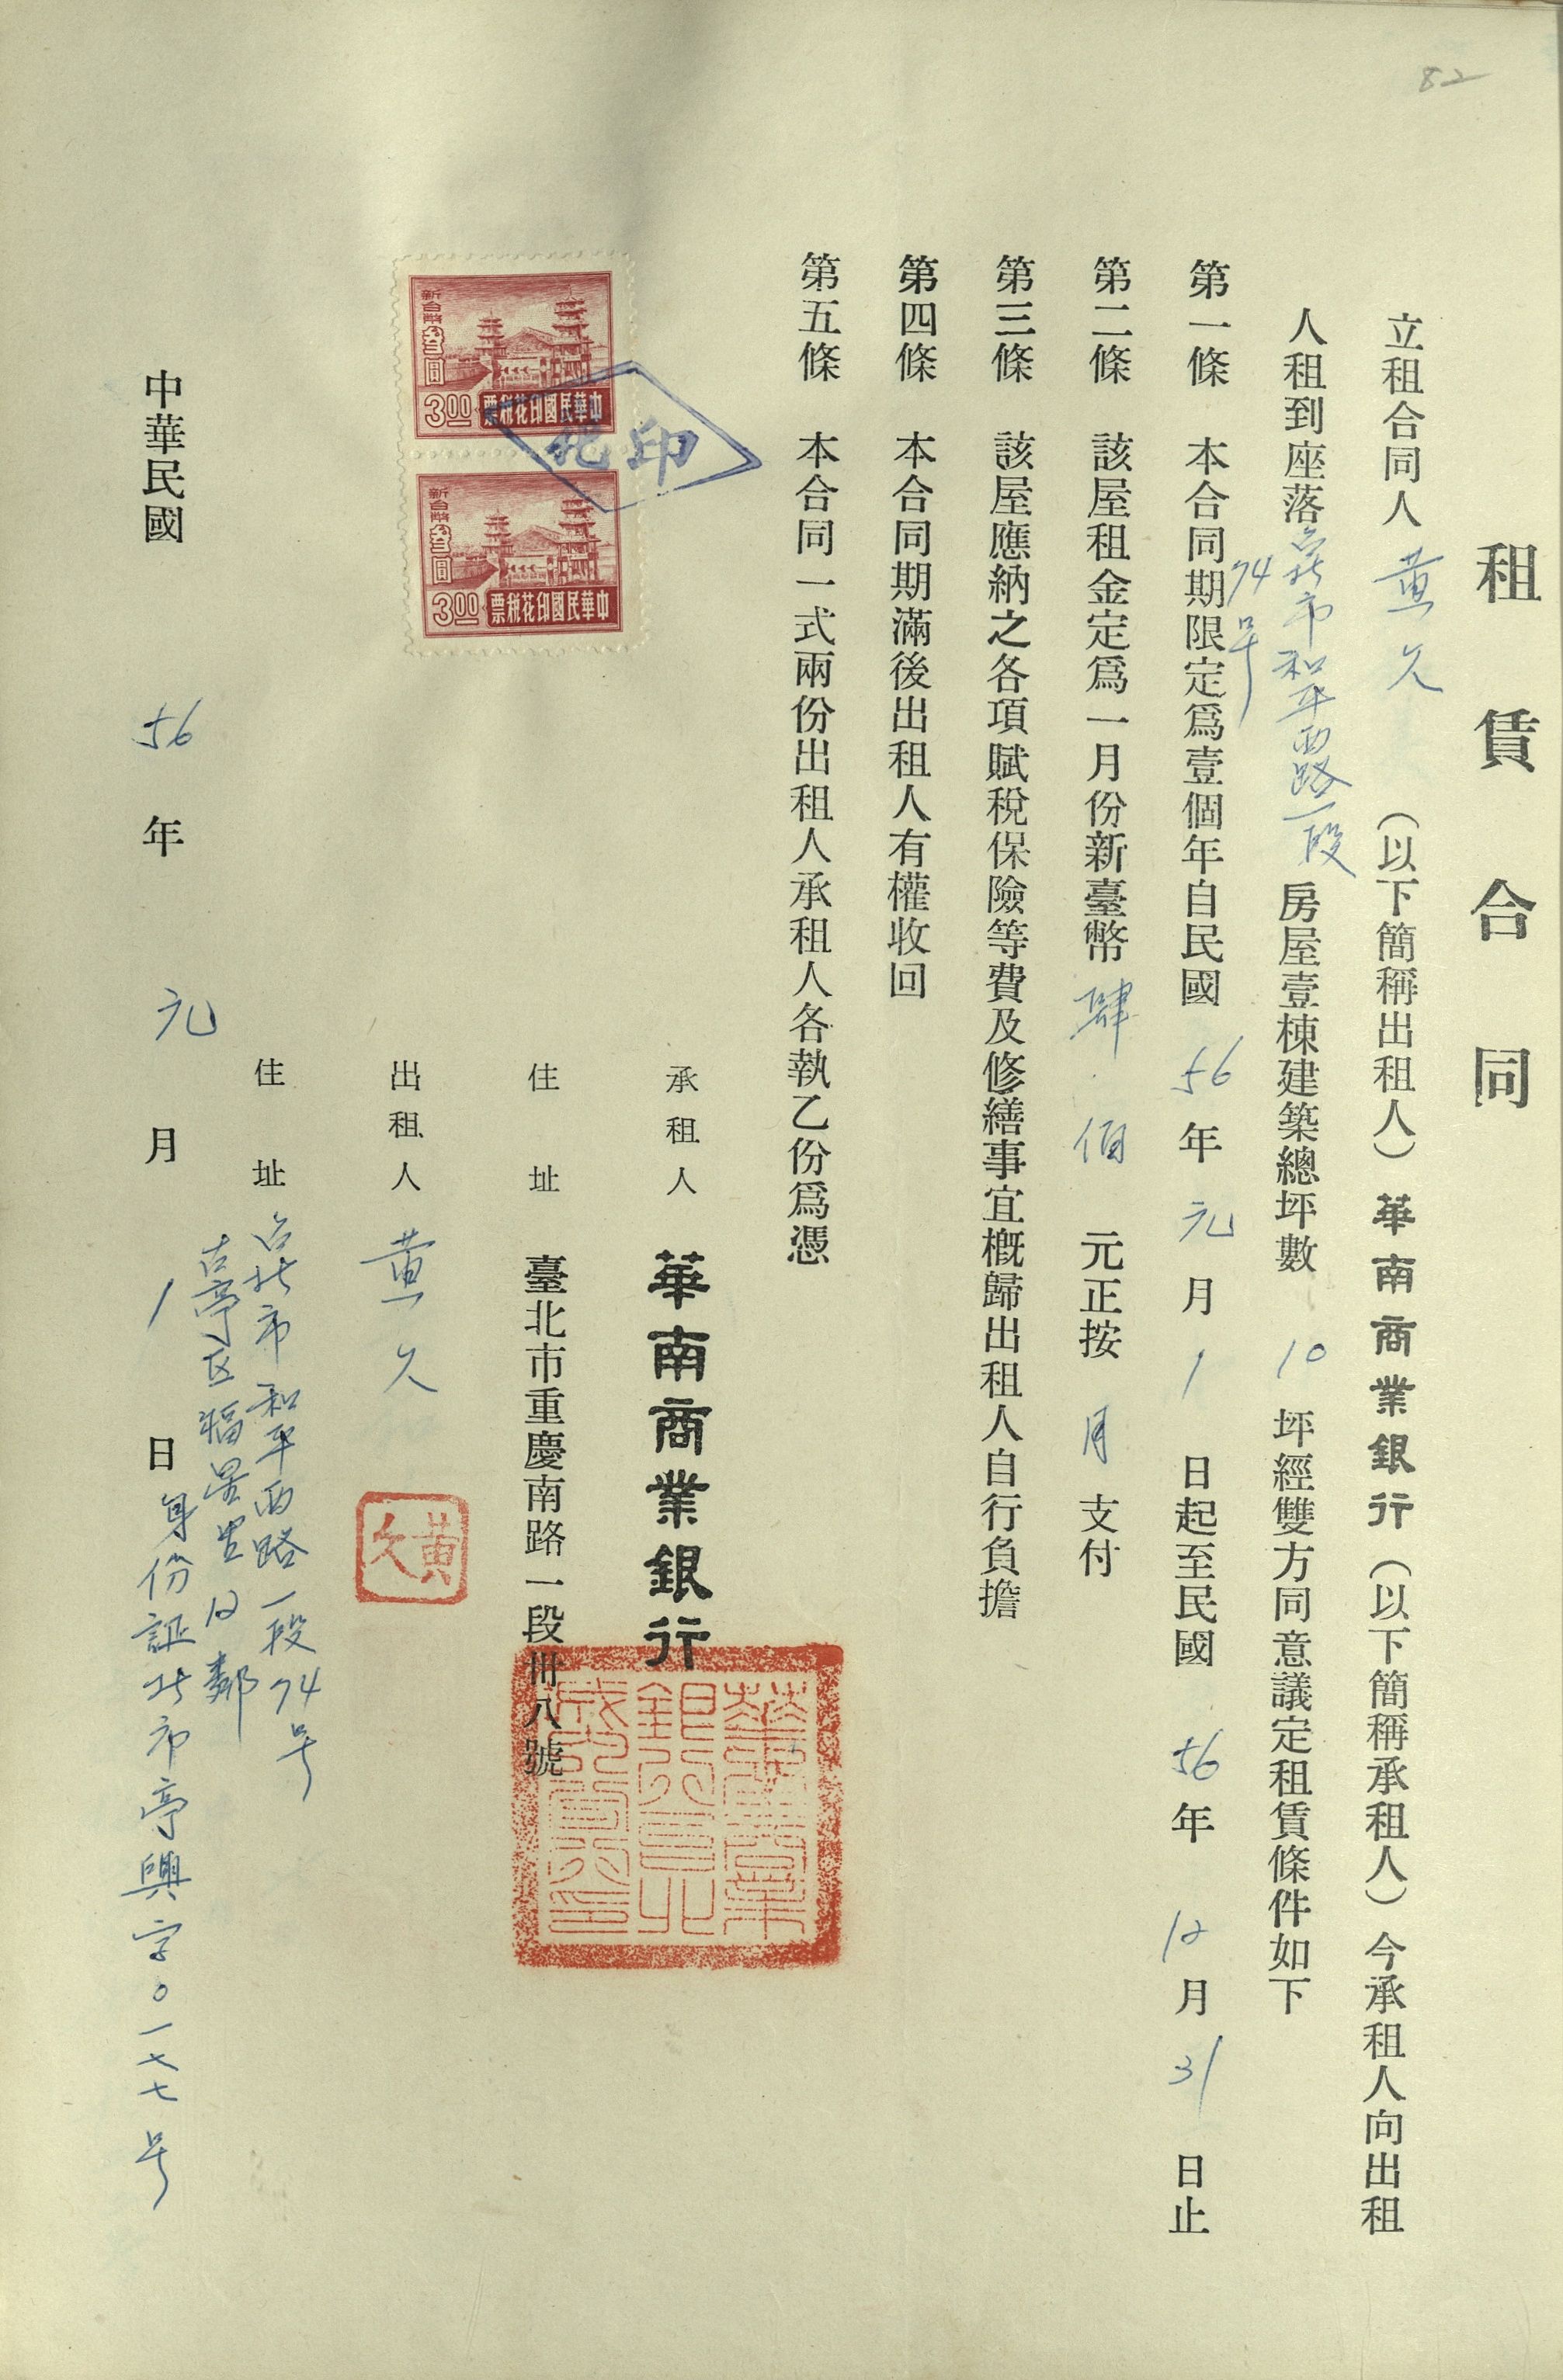 82
租賃合同
立租合同人 黄久 （以下簡稱出租人）華南商業銀行（以下簡稱承租人）今承租人向出租
人租到座落台北市和平西路一段74号房屋壹棟建築總坪數 10 坪經雙方同意議定租賃條件如下
第一條 本合同期限定爲壹個年自民國 56 年 元 月 1 日起至民國 56 年 12 月 31 日止
第二條 該屋租金定爲一月份新臺幣 肆佰 元正按 月 支付
第三條 該屋應納之各項賦稅保險等費及修繕事宜概歸出租人自行負擔
第四條 本合同期滿後出租人有權收回
第五條 本合同一式兩份出租人承租人各執乙份爲憑
承租人 華南商業銀行
住址 臺北市重慶南路一段卅八號
華南商業
銀行
印
出租人 黄久
黃久
住址 台北市和平西路一段74号
古亭区 12鄰
中華民國 56 年 元 月 1 日
身份証北市亭興字0一七七号
新台幣
叁圓
3.00
中華民國印花稅票
新台幣
叁圓
3.00
中華民國印花稅票
印花